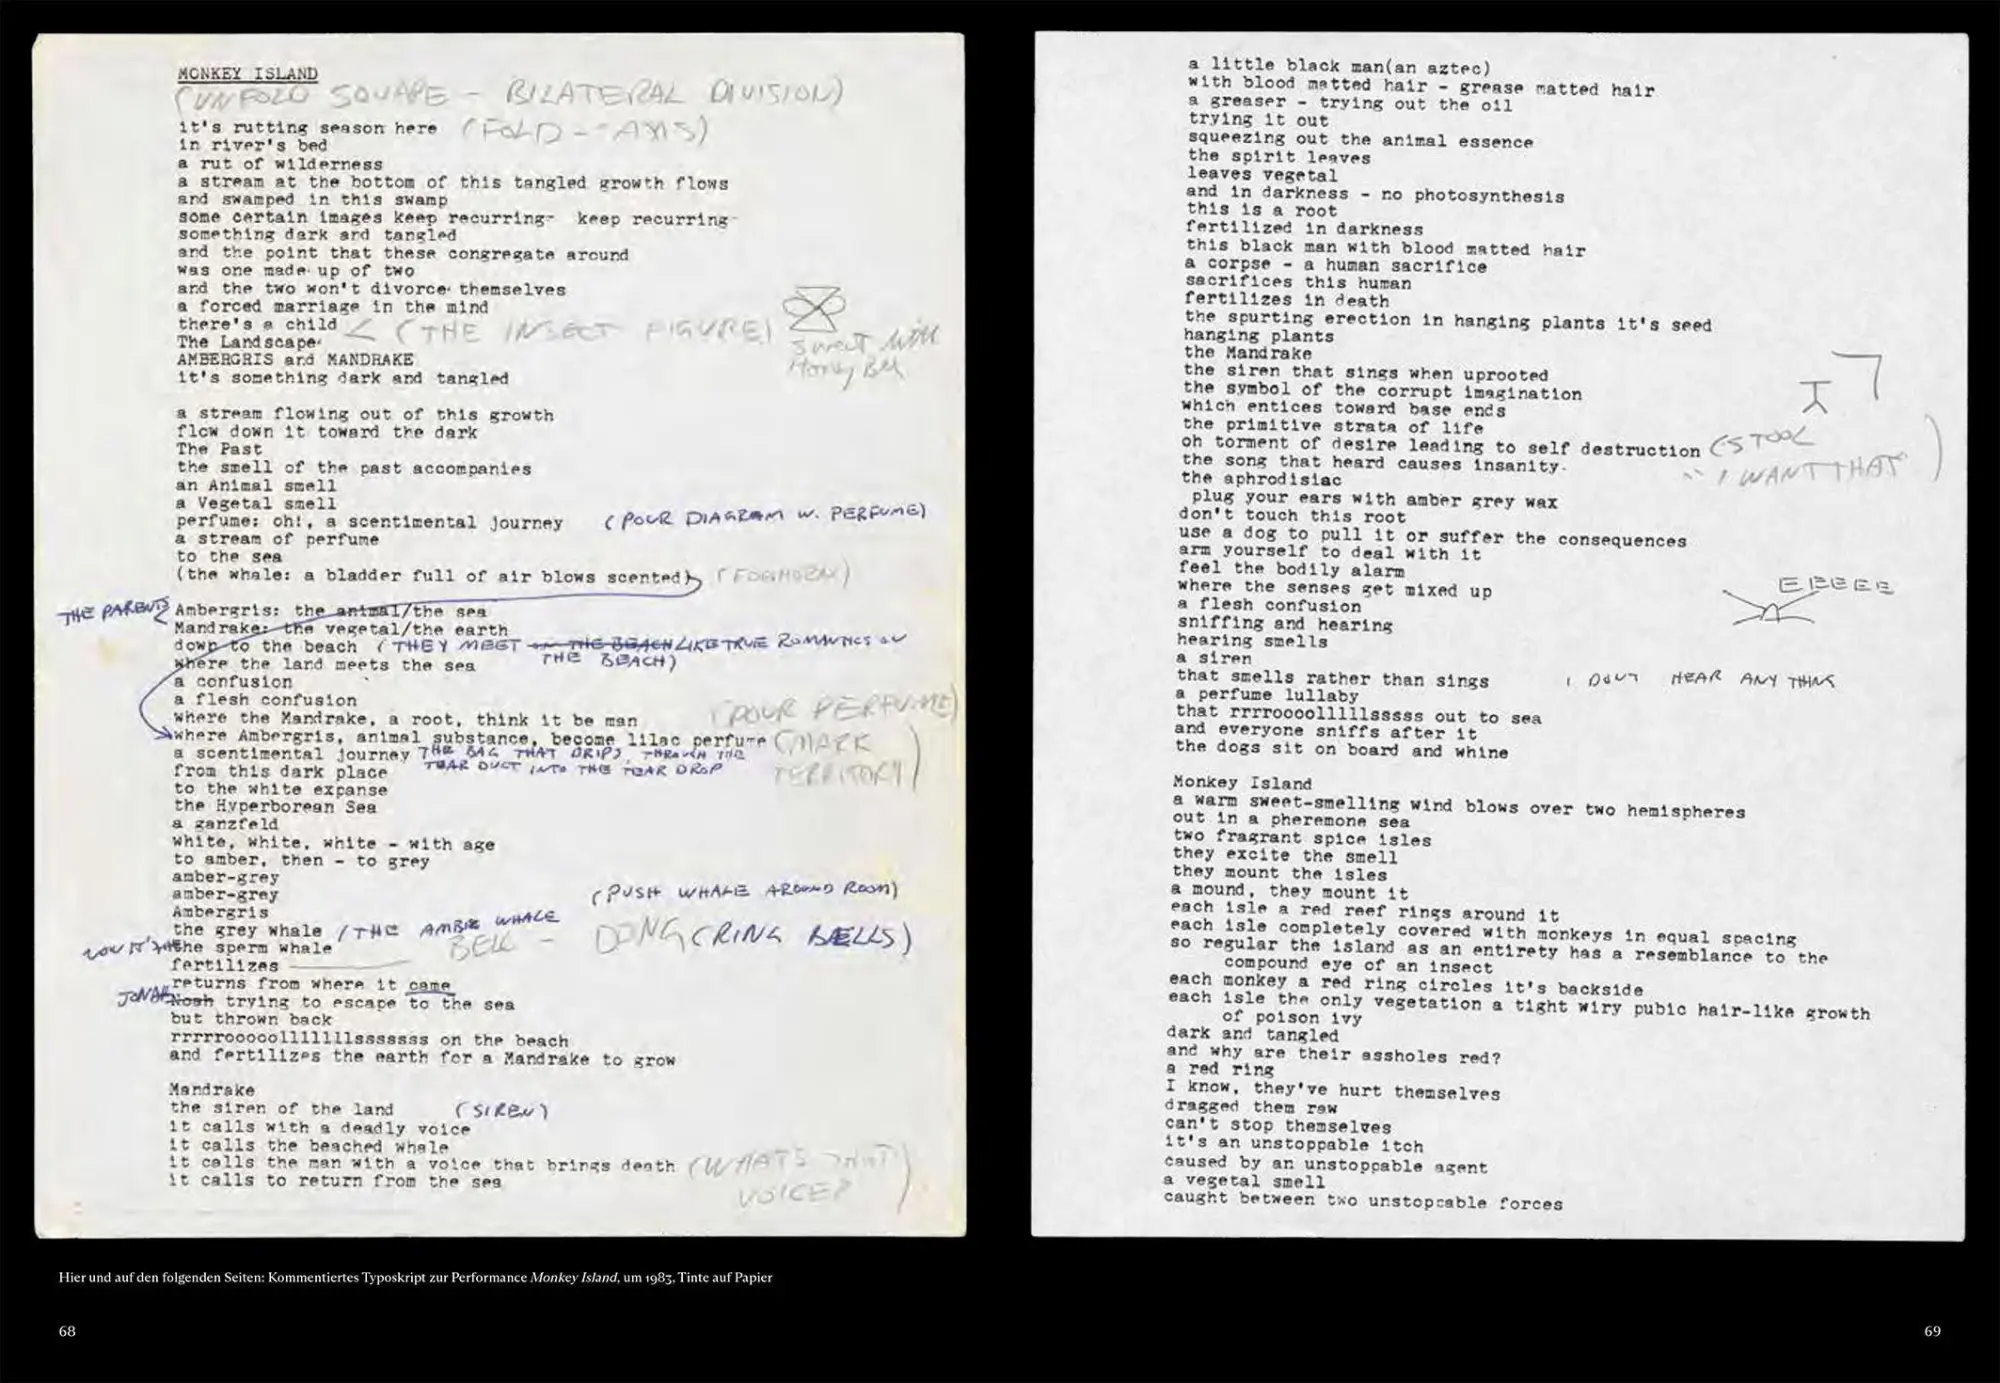 MONKEY ISLAND
(UNFOLD SQUARE - BILATERAL DIVISION)
it's rutting season here (FOLD - AXIS)
in river's bed
a rut of wilderness
a stream at the bottom of this tangled growth flows
and swamped in this swamp
some certain images keep recurring- keep recurring-
something dark and tangled
and the point that these congregate around
was one made up of two
and the two won't divorce themselves
a forced marriage in the mind
there's a child < (THE INSECT FIGURE)
The Landscape
sweet with
AMBERGRIS and MANDRAKE
Honey
it's something dark and tangled
a stream flowing out of this growth
flow down it toward the dark
The Past
the smell of the past accompanies
an Animal smell
a Vegetal smell
perfume: oh!, a scentimental journey (POUR DIAGRAM W. PERFUME)
a stream of perfume
to the sea
(the whale: a bladder full of air blows scented) (FOGHORN)
THE PARENTS Ambergris: the animal/the sea
Mandrake: the vegetal/the earth
down to the beach (THEY MEET ON THE BEACH LIKE TRUE ROMANTICS ON
THE BEACH)
where the land meets the sea
a confusion
a flesh confusion
where the Mandrake, a root, think it be man (POUR PERFUME)
where Ambergris, animal substance, become lilac perfume (MARK
TERRITORY)
a scentimental journey THE BAG THAT DRIPS THROUGH THE
TEAR DUCT INTO THE TEAR DROP
from this dark place
to the white expanse
the Hyperborean Sea
a ganzfeld
white, white, white - with age
to amber, then - to grey
amber-grey
amber-grey (PUSH WHALE AROUND ROOM)
Ambergris
the grey whale (THE WHALE
BELL - DONG (RING BELLS)
NOW IT'S THE the sperm whale
fertilizes
returns from where it came
JONAH Noah trying to escape to the sea
but thrown back
rrrrrooooolllllllsssssss on the beach
and fertilizes the earth for a Mandrake to grow
Mandrake
the siren of the land (SIREN)
it calls with a deadly voice
it calls the beached whale
it calls the man with a voice that brings death (WHATS THAT
VOICE?)
it calls to return from the sea
a little black man(an aztec)
with blood matted hair - grease matted hair
a greaser - trying out the oil
trying it out
squeezing out the animal essence
the spirit leaves
leaves vegetal
and in darkness - no photosynthesis
this is a root
fertilized in darkness
this black man with blood matted hair
a corpse - a human sacrifice
sacrifices this human
fertilizes in death
the spurting erection in hanging plants it's seed
hanging plants
the Mandrake
the siren that sings when uprooted
the symbol of the corrupt imagination
which entices toward base ends
the primitive strata of life
oh torment of desire leading to self destruction (STOOL
"I WANT THAT")
the song that heard causes insanity.
the aphrodisiac
plug your ears with amber grey wax
don't touch this root
use a dog to pull it or suffer the consequences
arm yourself to deal with it
feel the bodily alarm
where the senses get mixed up
EEEEEE
a flesh confusion
sniffing and hearing
hearing smells
a siren
that smells rather than sings I DON'T HEAR ANY THING
a perfume lullaby
that rrrroooolllllsssss out to sea
and everyone sniffs after it
the dogs sit on board and whine
Monkey Island
a warm sweet-smelling wind blows over two hemispheres
out in a pheremone sea
two fragrant spice isles
they excite the smell
they mount the isles
a mound, they mount it
each isle a red reef rings around it
each isle completely covered with monkeys in equal spacing
so regular the island as an entirety has a resemblance to the
compound eye of an insect
each monkey a red ring circles it's backside
each isle the only vegetation a tight wiry pubic hair-like growth
of poison ivy
dark and tangled
and why are their assholes red?
a red ring
I know, they've hurt themselves
dragged them raw
can't stop themselves
it's an unstoppable itch
caused by an unstoppable agent
a vegetal smell
caught between two unstoppable forces
Hier und auf den folgenden Seiten: Kommentiertes Typoskript zur Performance Monkey Island, um 1983, Tinte auf Papier
68
69